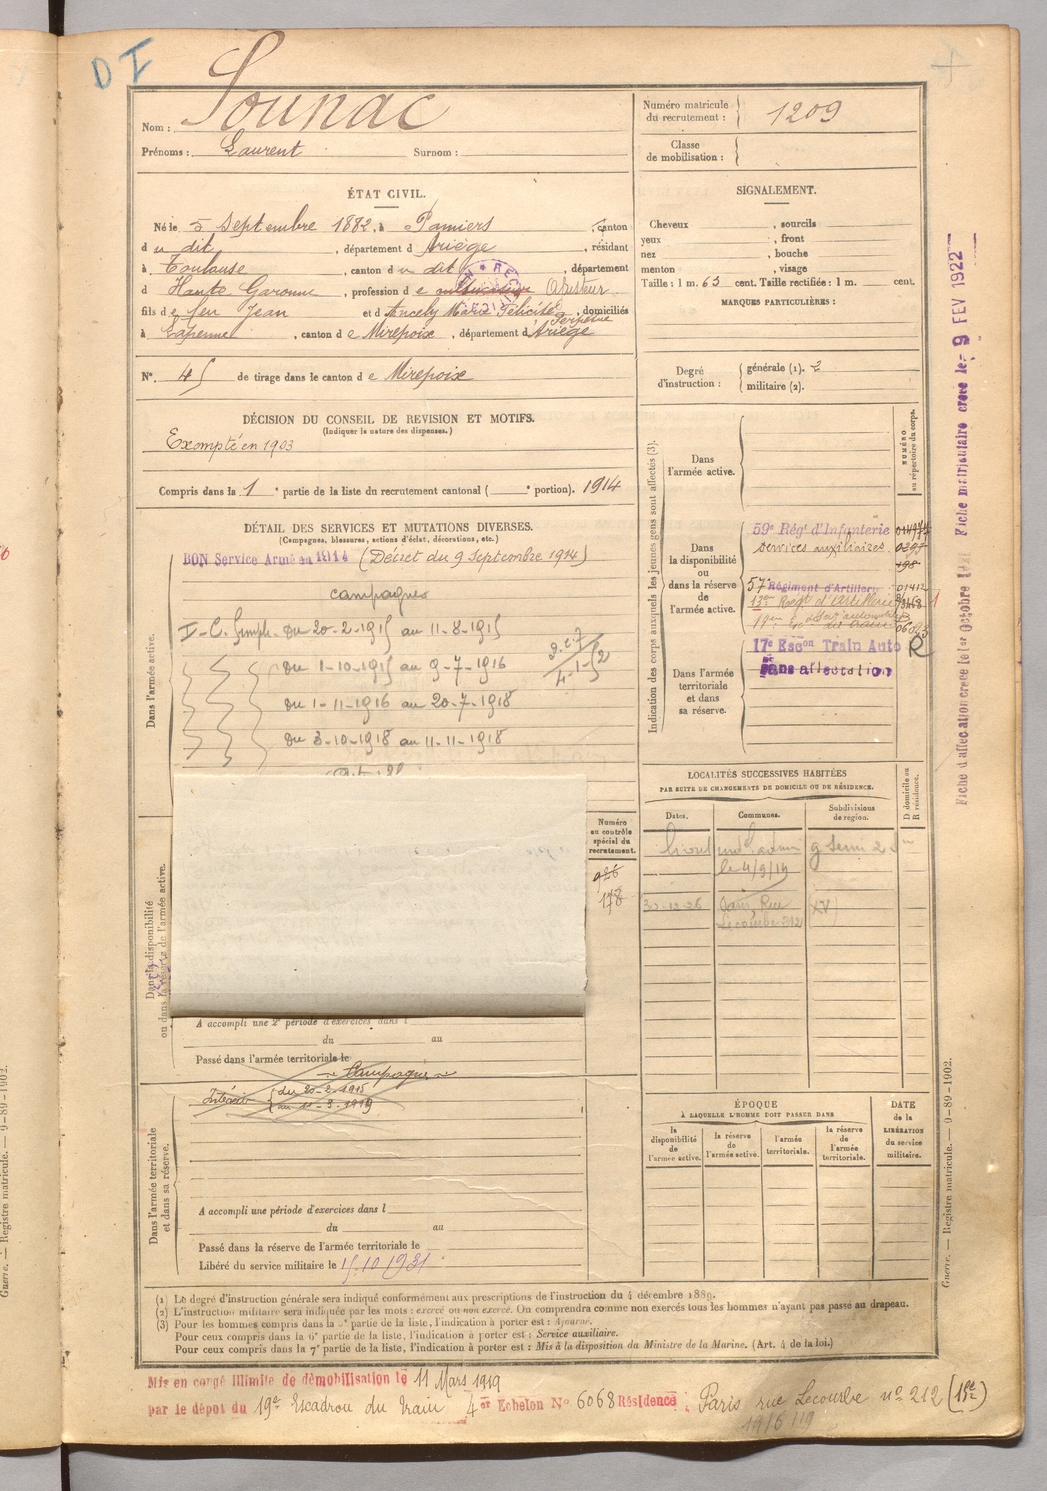 D I
Nom : Sounac
Prénoms : Laurent Surnom :
Numéro matricule
du recrutement : 1209
Classe
de mobilisation :
ÉTAT CIVIL.
Né le 5 Septembre 1882, à Pamiers, canton
d u dit, département d Ariège, résidant
à Toulouse, canton d u dit, département
d Haute Garonne, profession d e
fils d e feu Jean et d Ancely Marie Félicité Perpétue, domiciliés
à Lapenne, canton d e Mirepoix, département d Ariège
N° 45 de tirage dans le canton d e Mirepoix
SIGNALEMENT.
Cheveux , sourcils
yeux , front
nez , bouche
menton , visage
Taille : 1 m. 63 cent. Taille rectifiée : 1 m. cent.
MARQUES PARTICULIÈRES :
Degré
d'instruction :
générale (1). 2
militaire (2).
DÉCISION DU CONSEIL DE REVISION ET MOTIFS.
(Indiquer la nature des dispenses.)
Exempté en 1903
Compris dans la 1e partie de la liste du recrutement cantonal ( e portion). 1914
DÉTAIL DES SERVICES ET MUTATIONS DIVERSES.
(Campagnes, blessures, actions d'éclat, décorations, etc.)
BON Service Armé en 1914 (Décret du 9 Septembre 1914)
campagnes
I-C. Simple du 20-2-1915 au 11-8-1915
du 1-10-1915 au 9-7-1916
du 1-11-1916 au 20-7-1918
du 3-10-1918 au 11-11-1918
Dans l'armée active.
Dans la disponibilité
ou dans la réserve de l'armée active.
Numéro
au contrôle
spécial du
recrutement.
926
178
A accompli une 2e période d'exercices dans l
du au
Passé dans l'armée territoriale le
Campagne
Intérieur du 20-2-1915
au 11-3-1919
Dans l'armée territoriale
et dans sa réserve.
A accompli une période d'exercices dans l
du au
Passé dans la réserve de l'armée territoriale le
Libéré du service militaire le 15.10.1931
Indication des corps auxquels les jeunes gens sont affectés (3).
NUMÉRO
au répertoire du corps.
Dans
l'armée active.
Dans
la disponibilité
ou
dans la réserve
de
l'armée active.
59e Rég't d'Infanterie
Services auxiliaires
57e Régiment d'Artillerie 01412
13e Régt d'Artillerie
17e Escon Train Auto R
Sans affectation
Dans l'armée
territoriale
et dans
sa réserve.
LOCALITÉS SUCCESSIVES HABITÉES
PAR SUITE DE CHANGEMENTS DE DOMICILE OU DE RÉSIDENCE.
Dates. Communes. Subdivisions
de région. D domicile ou
R résidence.
le 4/9/19
30-12-26 Paris Rue XV
Lecourbe 212
ÉPOQUE
À LAQUELLE L'HOMME DOIT PASSER DANS
la
disponibilité
de
l'armée active.
la réserve
de
l'armée active.
l'armée
territoriale.
la réserve
de
l'armée
territoriale.
DATE
de la
LIBÉRATION
du service
militaire.
(1) Le degré d'instruction générale sera indiqué conformément aux prescriptions de l'instruction du 4 décembre 1889.
(2) L'instruction militaire sera indiquée par les mots : exercé ou non exercé. On comprendra comme non exercés tous les hommes n'ayant pas passé au drapeau.
(3) Pour les hommes compris dans la 2e partie de la liste, l'indication à porter est : Ajourné.
Pour ceux compris dans la 6e partie de la liste, l'indication à porter est : Service auxiliaire.
Pour ceux compris dans la 7e partie de la liste, l'indication à porter est : Mis à la disposition du Ministre de la Marine. (Art. 4 de la loi.)
Mis en congé illimité de démobilisation le 11 Mars 1919
par le dépôt du 19e Escadron du Train 4er Echelon No 6068 Résidence : Paris rue Lecourbe no 212 (15e)
Guerre. — Registre matricule. — 9-89-1902.
Fiche matriculaire créée le : 9 FEV 1922
Fiche d'affectation créée le 1er Octobre